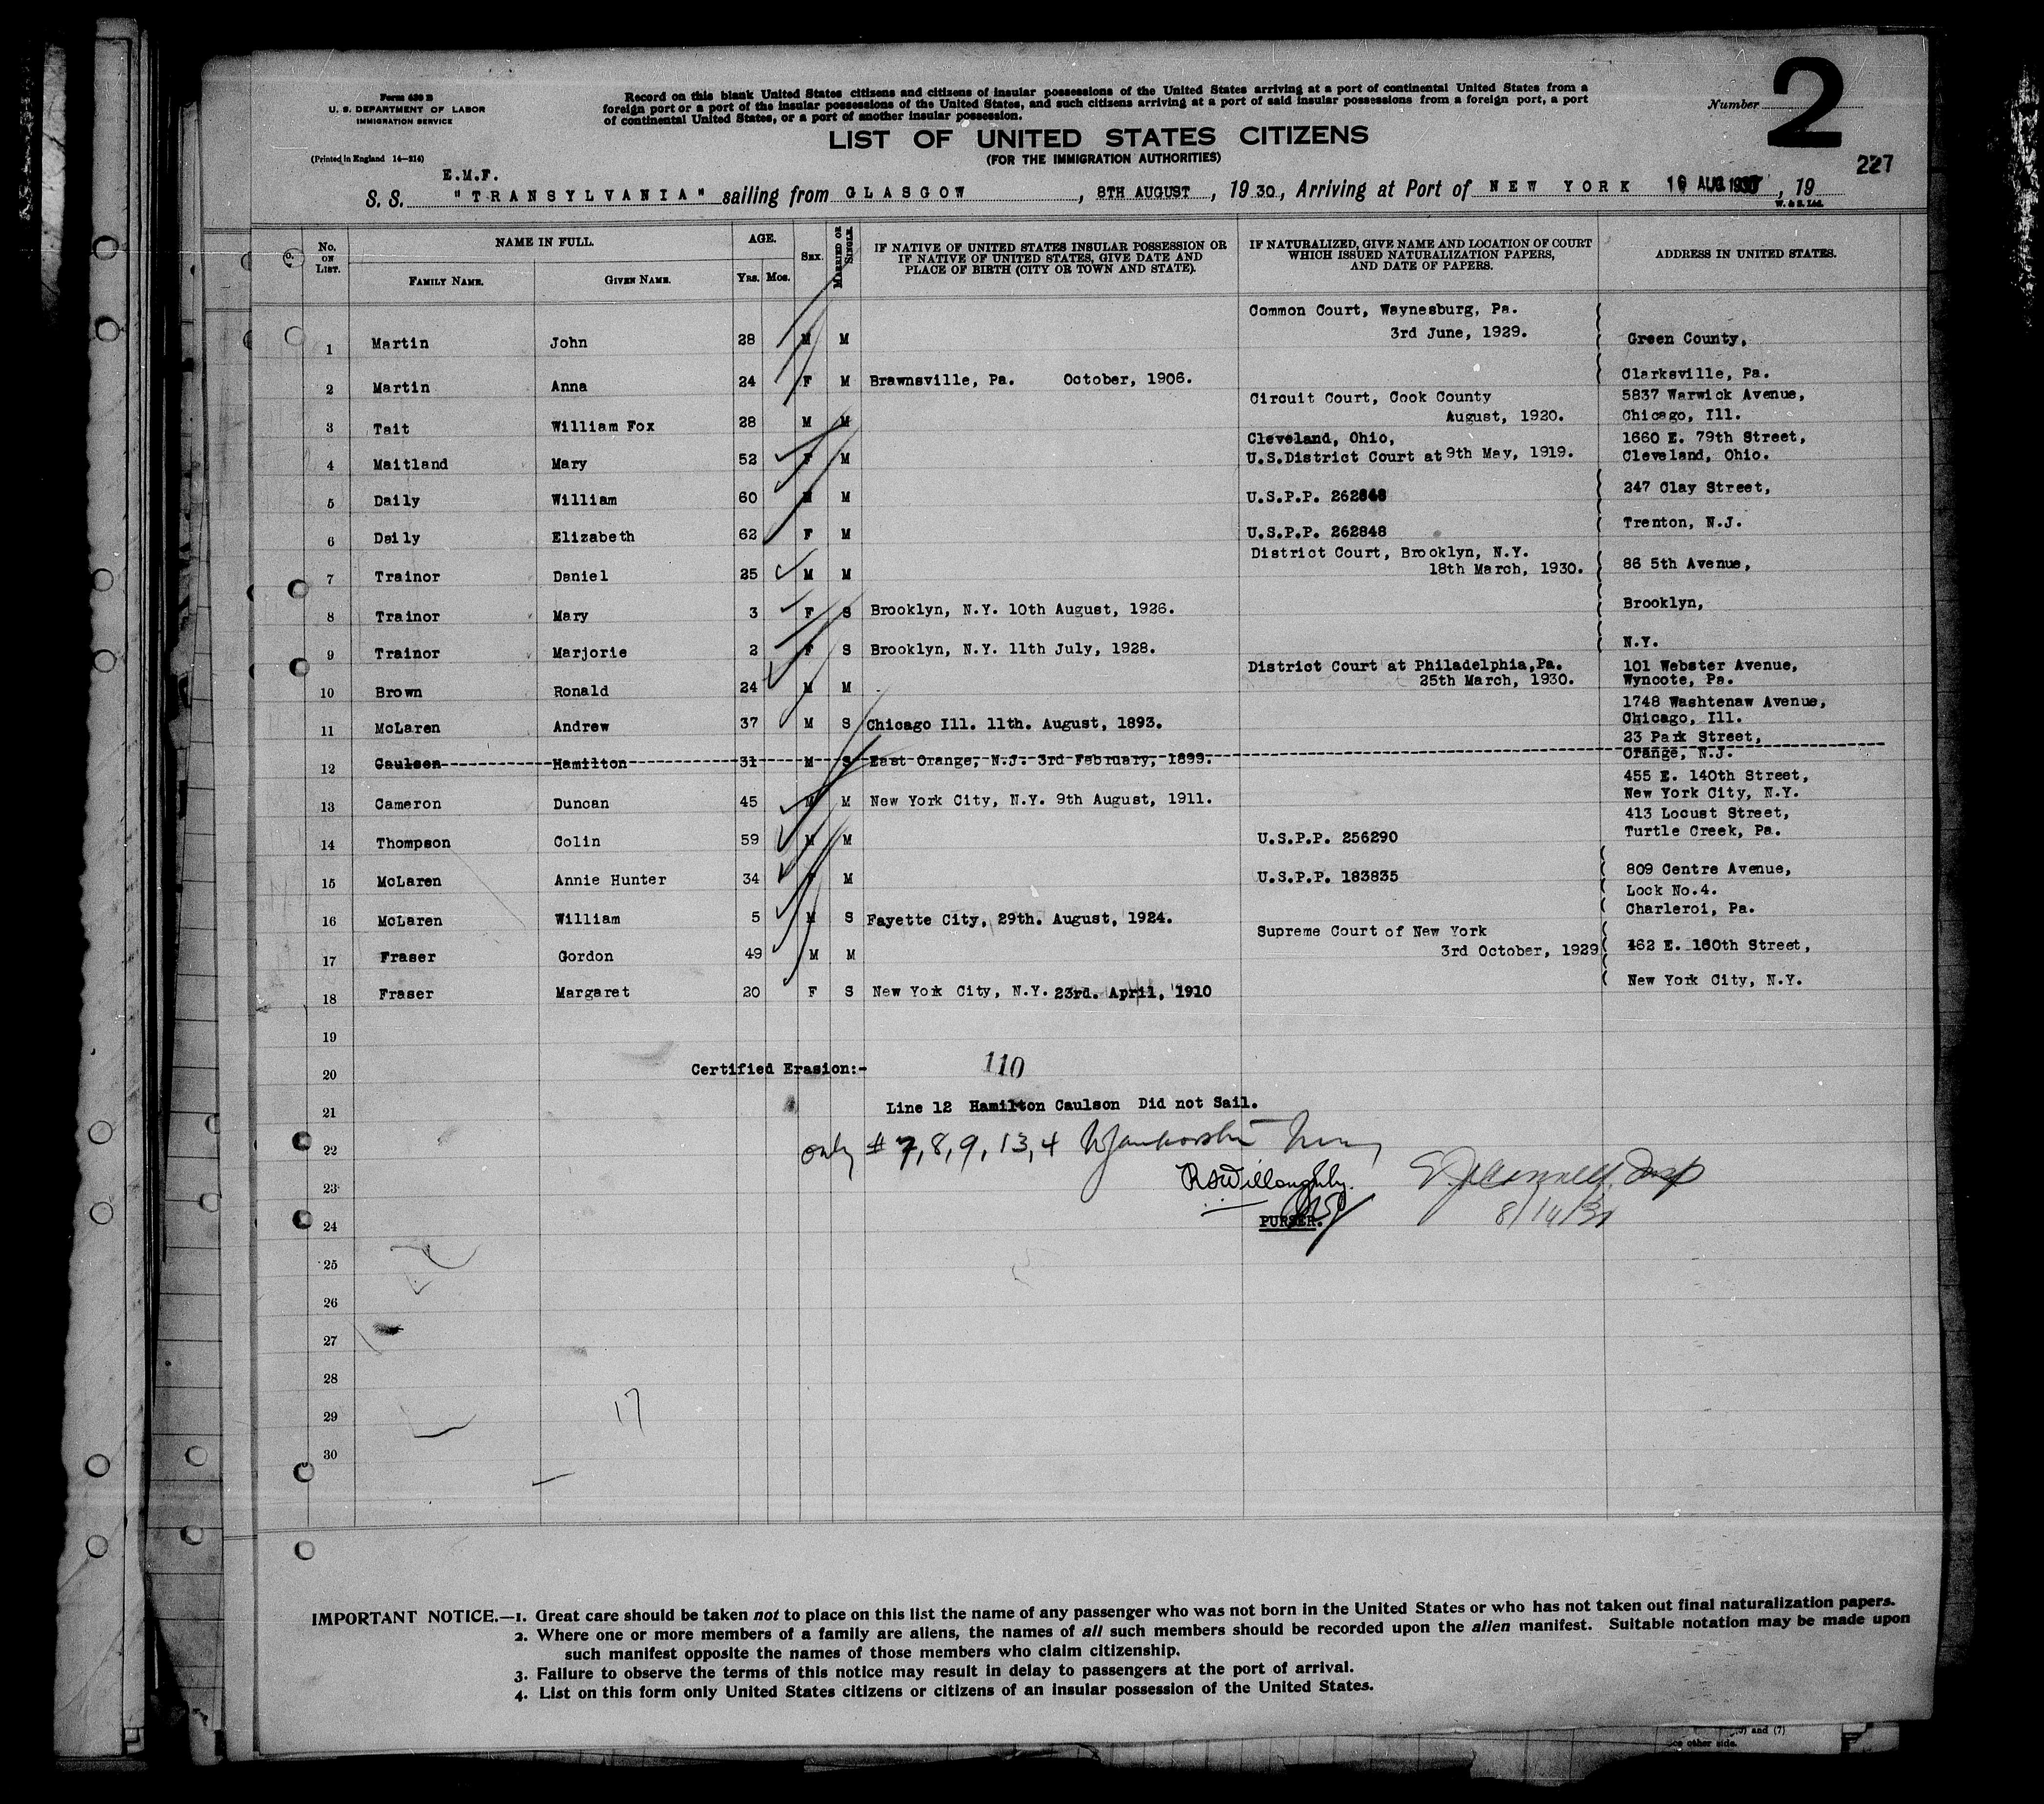 Form 630 B
U. S. DEPARTMENT OF LABOR
IMMIGRATION SERVICE
(Printed in England 14—214)
Record on this blank United States citizens and citizens of insular possessions of the United States arriving at a port of continental United States from a
foreign port or a port of the insular possessions of the United States, and such citizens arriving at a port of said insular possessions from a foreign port, a port
of continental United States, or a port of another insular possession.
Number 2
LIST OF UNITED STATES CITIZENS
(FOR THE IMMIGRATION AUTHORITIES)
227
E.M.F.
S. S. "TRANSYLVANIA" sailing from GLASGOW, 8TH AUGUST, 1930., Arriving at Port of NEW YORK 16 AUG 1930, 19
W. & S. Ltd.
No. ON LIST. NAME IN FULL. AGE. SEX. MARRIED OR SINGLE. IF NATIVE OF UNITED STATES INSULAR POSSESSION OR IF NATIVE OF UNITED STATES, GIVE DATE AND PLACE OF BIRTH (CITY OR TOWN AND STATE). IF NATURALIZED, GIVE NAME AND LOCATION OF COURT WHICH ISSUED NATURALIZATION PAPERS, AND DATE OF PAPERS. ADDRESS IN UNITED STATES.
FAMILY NAME. GIVEN NAME. Yrs. Mos.
1 Martin John 28 M M Common Court, Waynesburg, Pa. 3rd June, 1929. Green County,
2 Martin Anna 24 F M Brawnsville, Pa. October, 1906. Clarksville, Pa.
3 Tait William Fox 28 M M Circuit Court, Cook County August, 1920. 5837 Warwick Avenue, Chicago, Ill.
4 Maitland Mary 52 F M Cleveland, Ohio, U.S.District Court at 9th May, 1919. 1660 E. 79th Street, Cleveland, Ohio.
5 Daily William 60 M M U.S.P.P. 262848 247 Clay Street,
6 Daily Elizabeth 62 F M U.S.P.P. 262848 Trenton, N.J.
7 Trainor Daniel 25 M M District Court, Brooklyn, N.Y. 18th March, 1930. 86 5th Avenue,
8 Trainor Mary 3 F S Brooklyn, N.Y. 10th August, 1926. Brooklyn,
9 Trainor Marjorie 2 F S Brooklyn, N.Y. 11th July, 1928. N.Y.
10 Brown Ronald 24 M M District Court at Philadelphia,Pa. 25th March, 1930. 101 Webster Avenue, Wyncote, Pa.
11 McLaren Andrew 37 M S Chicago Ill. 11th. August, 1893. 1748 Washtenaw Avenue, Chicago, Ill.
12 Caulson Hamilton 31 M S East Orange, N.J. 3rd February, 1899. 23 Park Street, Orange, N.J.
13 Cameron Duncan 45 M M New York City, N.Y. 9th August, 1911. 455 E. 140th Street, New York City, N.Y.
14 Thompson Colin 59 M M U.S.P.P. 256290 413 Locust Street, Turtle Creek, Pa.
15 McLaren Annie Hunter 34 F M U.S.P.P. 183835 809 Centre Avenue,
Lock No.4.
16 McLaren William 5 M S Fayette City, 29th. August, 1924. Charleroi, Pa.
17 Fraser Gordon 49 M M Supreme Court of New York 3rd October, 1929 462 E. 160th Street,
18 Fraser Margaret 20 F S New York City, N.Y. 23rd. April, 1910 New York City, N.Y.
19
20 Certified Erasion:- 110
21 Line 12 Hamilton Caulson Did not Sail.
22 only # 7, 8, 9, 13, 4
23 RSWilloughby.
24 PURSER.
25
26
27
28
29 17
30
IMPORTANT NOTICE.—1. Great care should be taken not to place on this list the name of any passenger who was not born in the United States or who has not taken out final naturalization papers.
2. Where one or more members of a family are aliens, the names of all such members should be recorded upon the alien manifest. Suitable notation may be made upon
such manifest opposite the names of those members who claim citizenship.
3. Failure to observe the terms of this notice may result in delay to passengers at the port of arrival.
4. List on this form only United States citizens or citizens of an insular possession of the United States.
and (7)
other side.